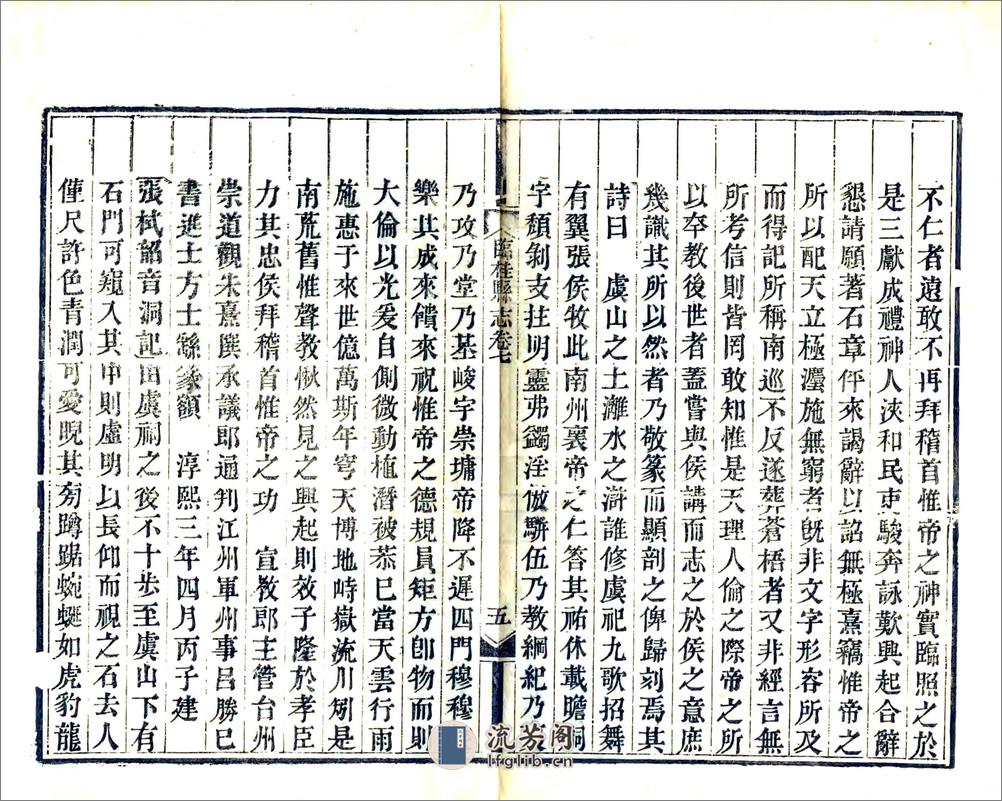 不仁者遠敢不再拜稽首惟帝之神實臨照之於
是三獻成禮神人浹和民吏駿奔詠歎興起合辭
懇請願著石章伻來謁辭以詔無極熹竊惟帝之
所以配天立極灋施無窮者旣非文字形容所及
而得記所稱南巡不反遂葬蒼梧者又非經言無
所考信則皆罔敢知惟是天理人倫之際帝之所
以卒教後世者蓋嘗與侯講而志之於侯之意庶
幾識其所以然者乃敬篆而顯剖之俾歸刻焉其
詩曰 虞山之土灕水之滸誰修虞祀九歌招舞
有翼張侯牧此南州襄帝之仁答其祐休載瞻祠
宇頹剝支拄明靈弗蠲淫倣駢伍乃教綱紀乃
臨桂縣志卷七 五
乃攻乃堂乃基峻宇崇墉帝降不遲四門穆穆
樂其成來饋來祝惟帝之德規員矩方卽物而則
大倫以光爰自側微動植潛被恭已當天雲行雨
施惠于來世億萬斯年穹天博地時嶽流川矧是
南荒舊惟聲教愀然見之興起則效子隆於孝臣
力其忠侯拜稽首惟帝之功 宣教郎主管台州
崇道觀朱熹撰承議郎通判江州軍州事呂勝已
書進士方士繇篆額 淳熙三年四月丙子建
張栻韶音洞記由虞祠之後不十歩至虞山下有
石門可窺入其中則虛明以長仰而視之石去人
僅尺許色青潤可愛睨其旁蹲踞蜿蜒如虎豹龍
流芳阁
lfglib.cn